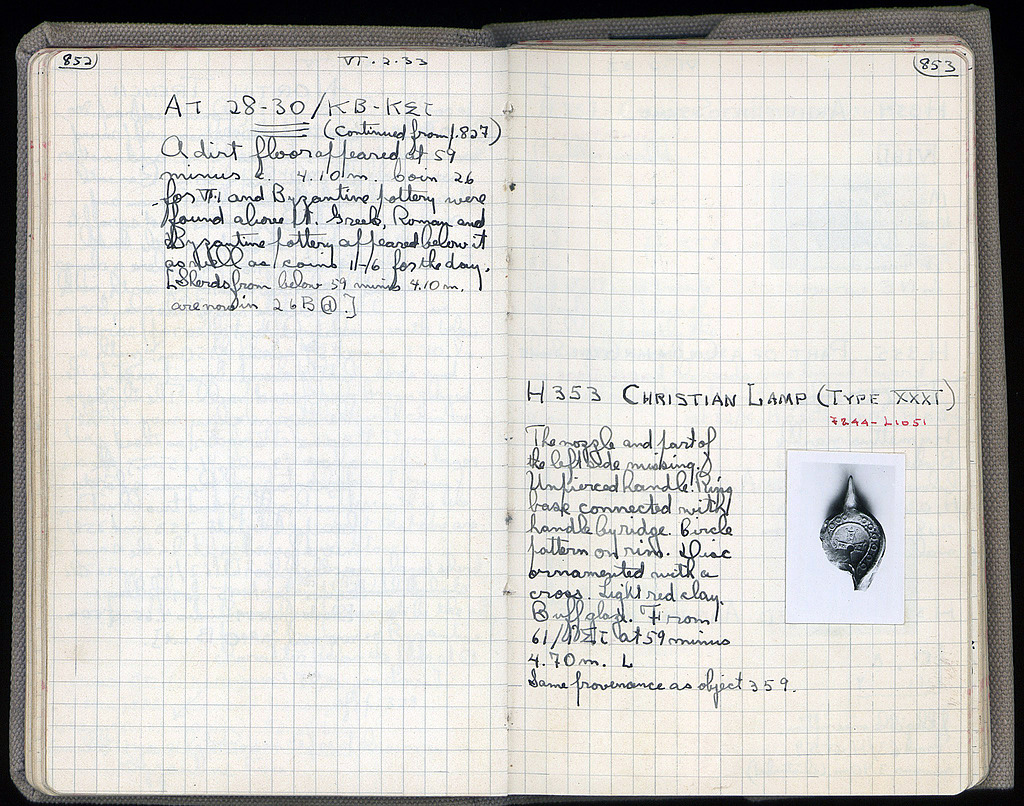 852
VI.2.33
AT 28-30/KB-KΣΤ
(Continued from p.827)
A dirt floor appeared at 59
minus c. 4.10 m. Coin 26
for VI.1 and Byzantine pottery were
found above it. Greek, Roman and
Byzantine pottery appeared below it
as well as coins 11-16 for the day.
[Sherds from below 59 minus 4.10 m.
are now in 26B ⓓ.]
853
H 353 CHRISTIAN LAMP (TYPE XXXI)
7244-L1051
The nozzle and part of
the left side missing.
Unpierced handle. Ring
base connected with
handle by ridge. Circle
pattern on rim. Disc
ornamented with a
cross. Light red clay.
Buff glaze. From
61/ at 59 minus
4.70 m. L
Same provenance as object 359.